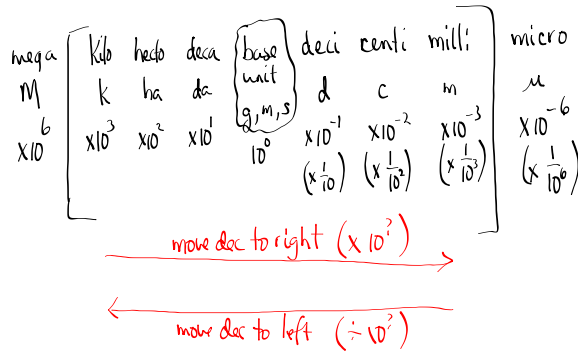 mega kilo hecto deca base unit deci centi milli micro
M k ha da g, m, s d c m μ
x10⁶ x10³ x10² x10¹ 10⁰ x10⁻¹ x10⁻² x10⁻³ x10⁻⁶
(x 1/10) (x 1/10²) (x 1/10³) (x 1/10⁶)
move dec to right (x 10^?)
move dec to left (÷ 10^?)